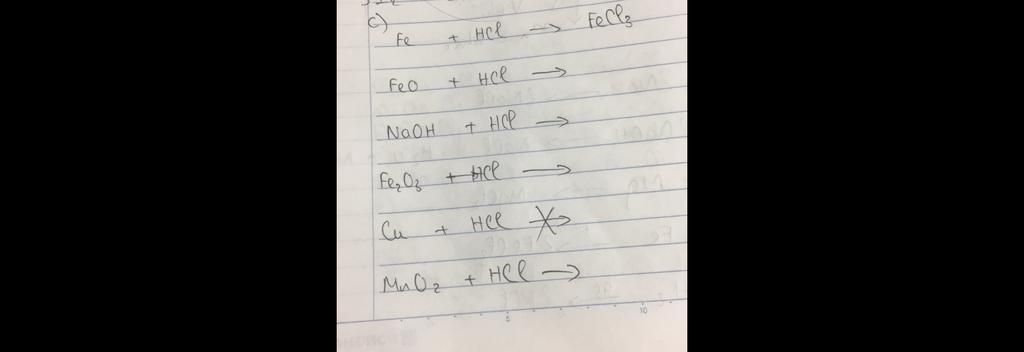 c) Fe + HCl → FeCl₃
FeO + HCl →
NaOH + HCl →
Fe₂O₃ + HCl →
Cu + HCl ↛
MnO₂ + HCl →